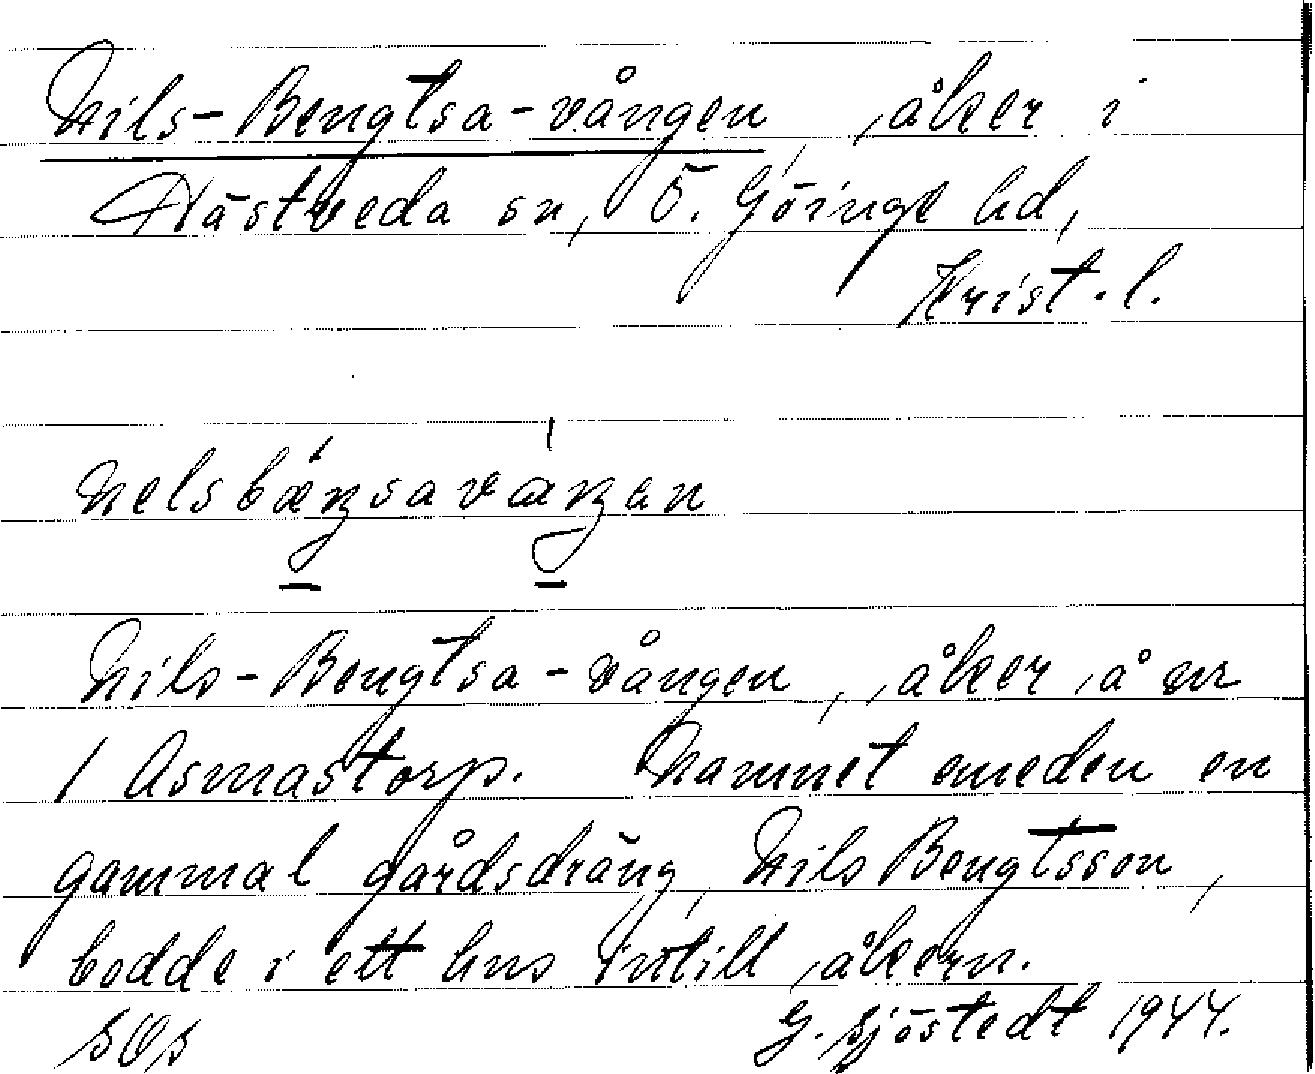 Nils-Bengtsa-vången, åker i
Hästveda sn, Ö. Göinge hd,
Krist. l.
Nils-Bengtsa-vången, åker å nr
1 Asmastorp. Namnet emedan en
gammal gårdsdräng, Nils Bengtsson,
bodde i ett hus intill åkern.
G. Sjöstedt 1944.